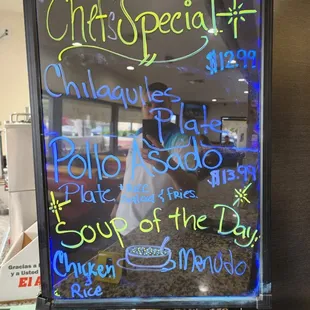 Chefs Special!
$12.99
Chilaquiles
Plate
Pollo Asado
$13.99
Plate
& Fries
Soup of the Day
Chicken
& Rice
Menudo
Gracias a
y a Usted
El